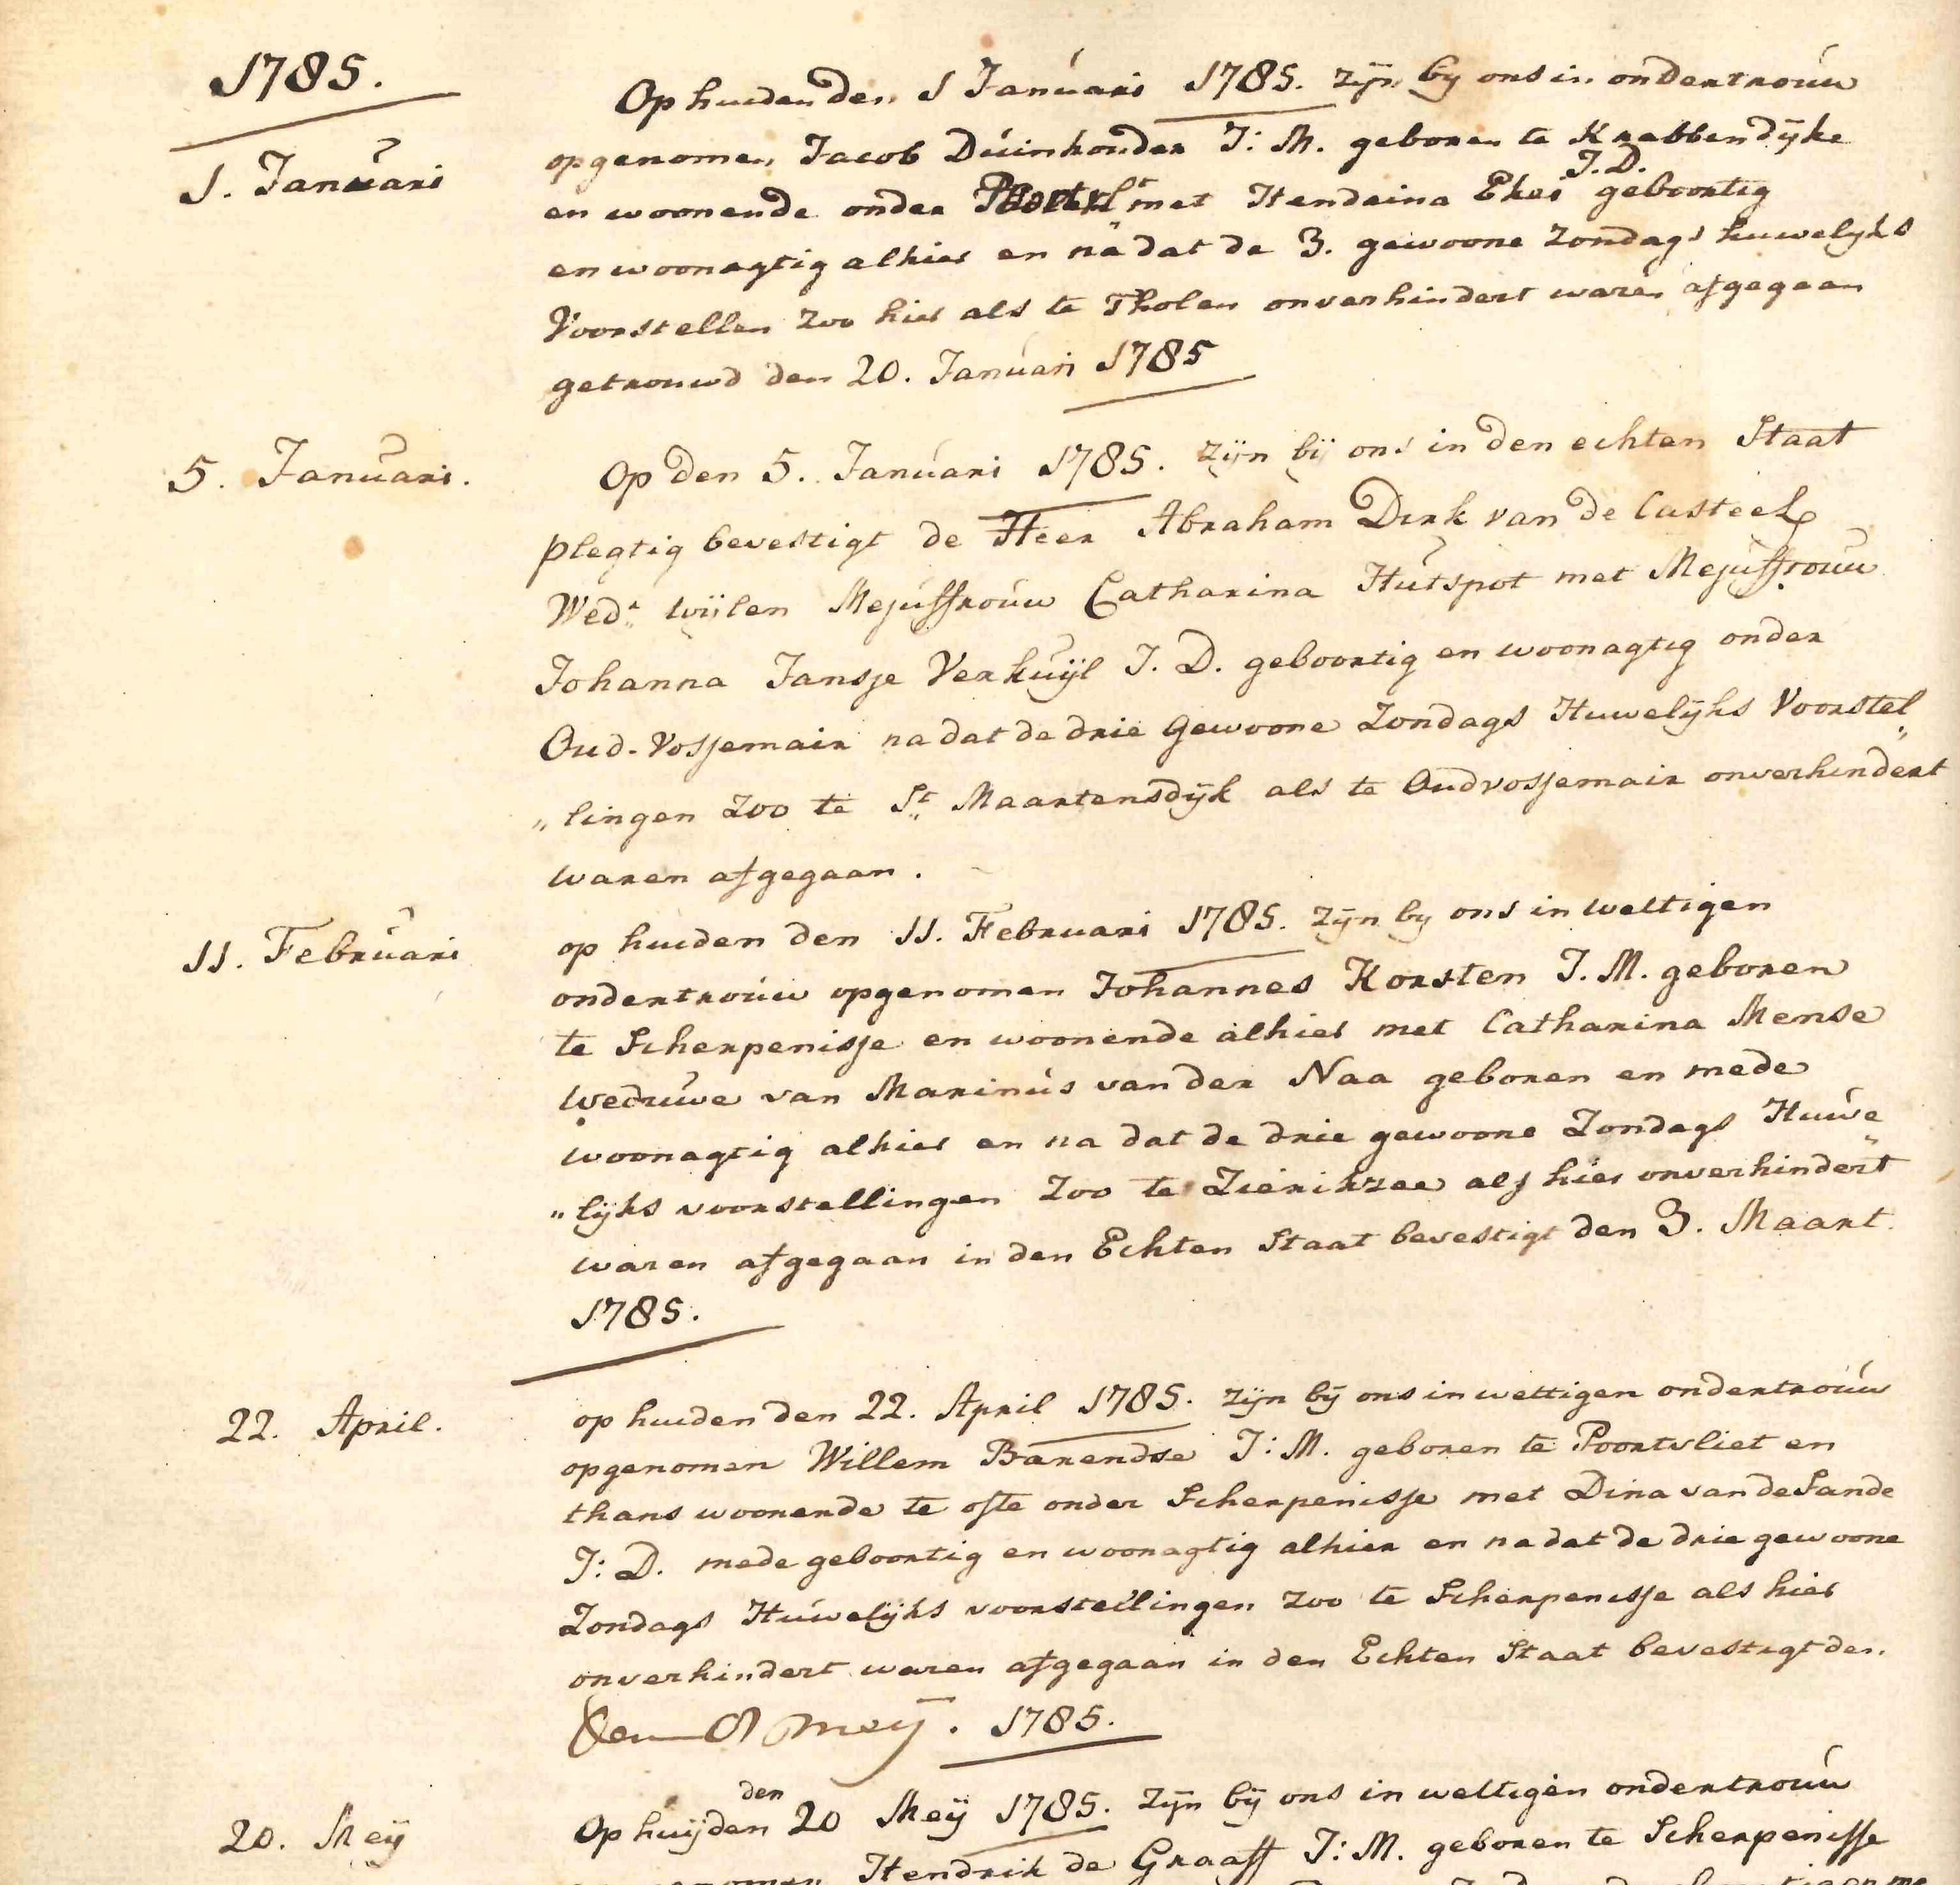 1785.
1. Januari
Op huiden den 1 Januari 1785. zijn by ons in ondertrouw
opgenomen Jacob Duinhouder J: M. geboren te Krabbendijke
J. D.
en woonende onder met Hendrina Ekes geboortig
en woonagtig alhier en na dat de 3. gewoone zondags huwelyks
Voorstellen zoo hier als te Tholen onverhindert waren afgegaan
getrouwd den 20. Januari 1785
5. Januari.
Op den 5. Januari 1785. zijn bij ons in den echten Staat
plegtig bevestigt de Heer Abraham Dirk van de Casteele
Wedr wijlen Mejuffrouw Catharina Hutspot met Mejuffrouw
Johanna Jansje Verkuijl J. D. geboortig en woonagtig onder
Oud-Vossemair na dat de drie Gewoone Zondags Huwelijks Voorstel„
„lingen zoo te St Maartensdijk als te Oudvossemair onverhindert
waren afgegaan.
11. Februari
op huiden den 11. Februari 1785. zijn by ons in wettigen
ondertrouw opgenomen Johannes Korsten J. M. geboren
te Scherpenisse en woonende alhier met Catharina Mense
Weduwe van Marinus van der Naa geboren en mede
woonagtig alhier en na dat de drie gewoone Zondags Huwe„
„lijks voorstellingen zoo te Zierikzee als hier onverhindert
waren afgegaan in den Echten Staat bevestigt den 3. Maart
1785.
22. April.
op huiden den 22. April 1785. zijn bij ons in wettigen ondertrouw
opgenomen Willem Barendse J: M. geboren te Poortvliet en
thans woonende te ofte onder Scherpenisse met Dina van de Sande
J: D. mede geboortig en woonagtig alhier en na dat de drie gewoone
Zondags Huwelijks voorstellingen zoo te Scherpenisse als hier
onverhindert waren afgegaan in den Echten Staat bevestigt den
den meij. 1785.
20. Meij
den
Op huijden 20 Meij 1785. zijn bij ons in wettigen ondertrouw
Hendrik de Graaff J: M. geboren te Scherpenisse